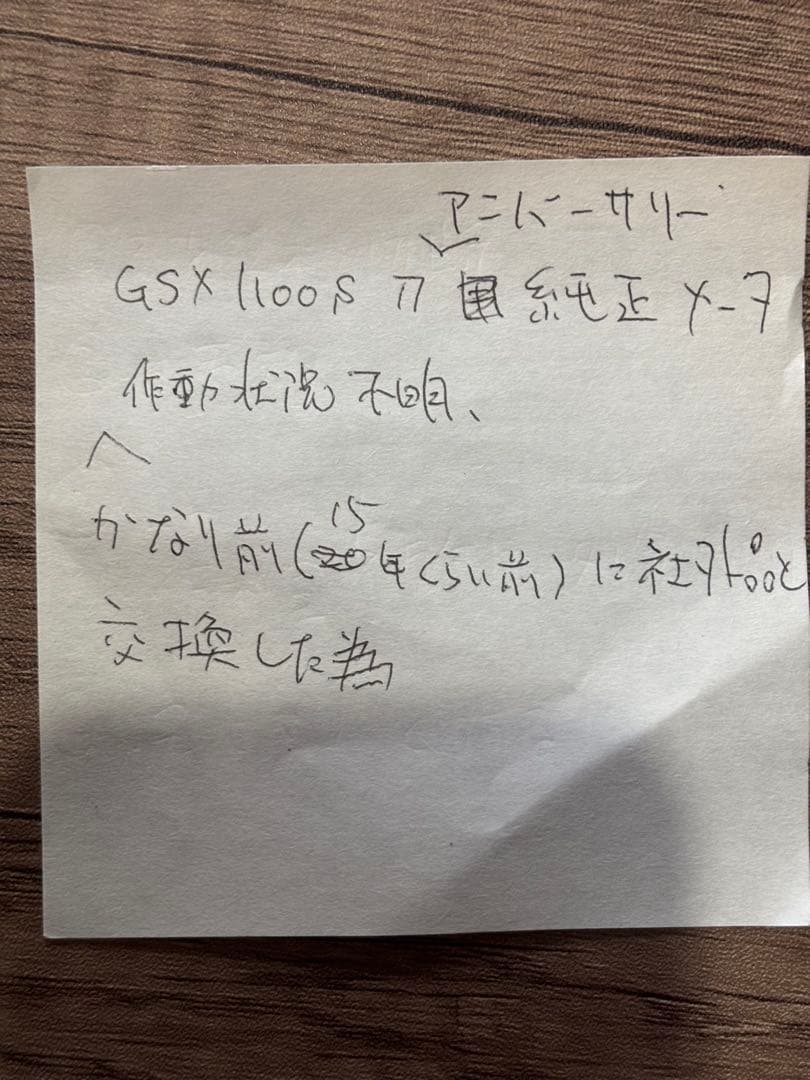 アニバーサリー
GSX1100S 刀 純正メーター
作動状況不明、
かなり前(15年くらい前)に社外品と
交換した為